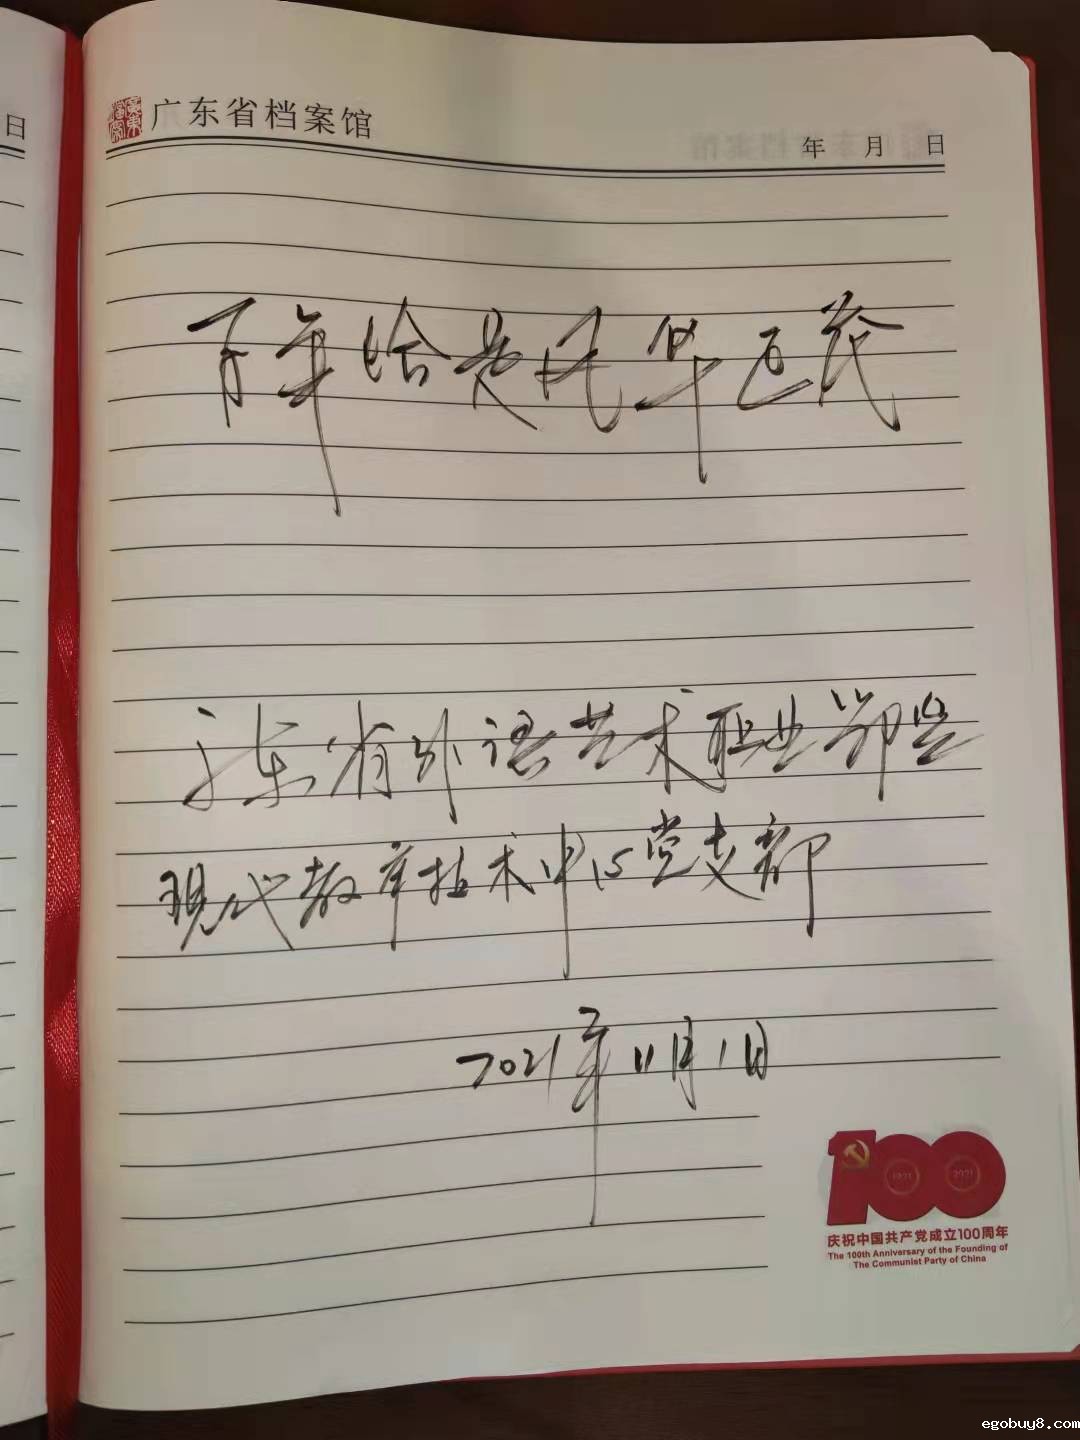 日
广东省档案馆
年 月 日
百年恰是风华正茂
广东省外语艺术职业学院
现代教育技术中心党支部
2021年11月1日
100
1921 2021
庆祝中国共产党成立100周年
The 100th Anniversary of the Founding of
The Communist Party of China
egobuy8.com